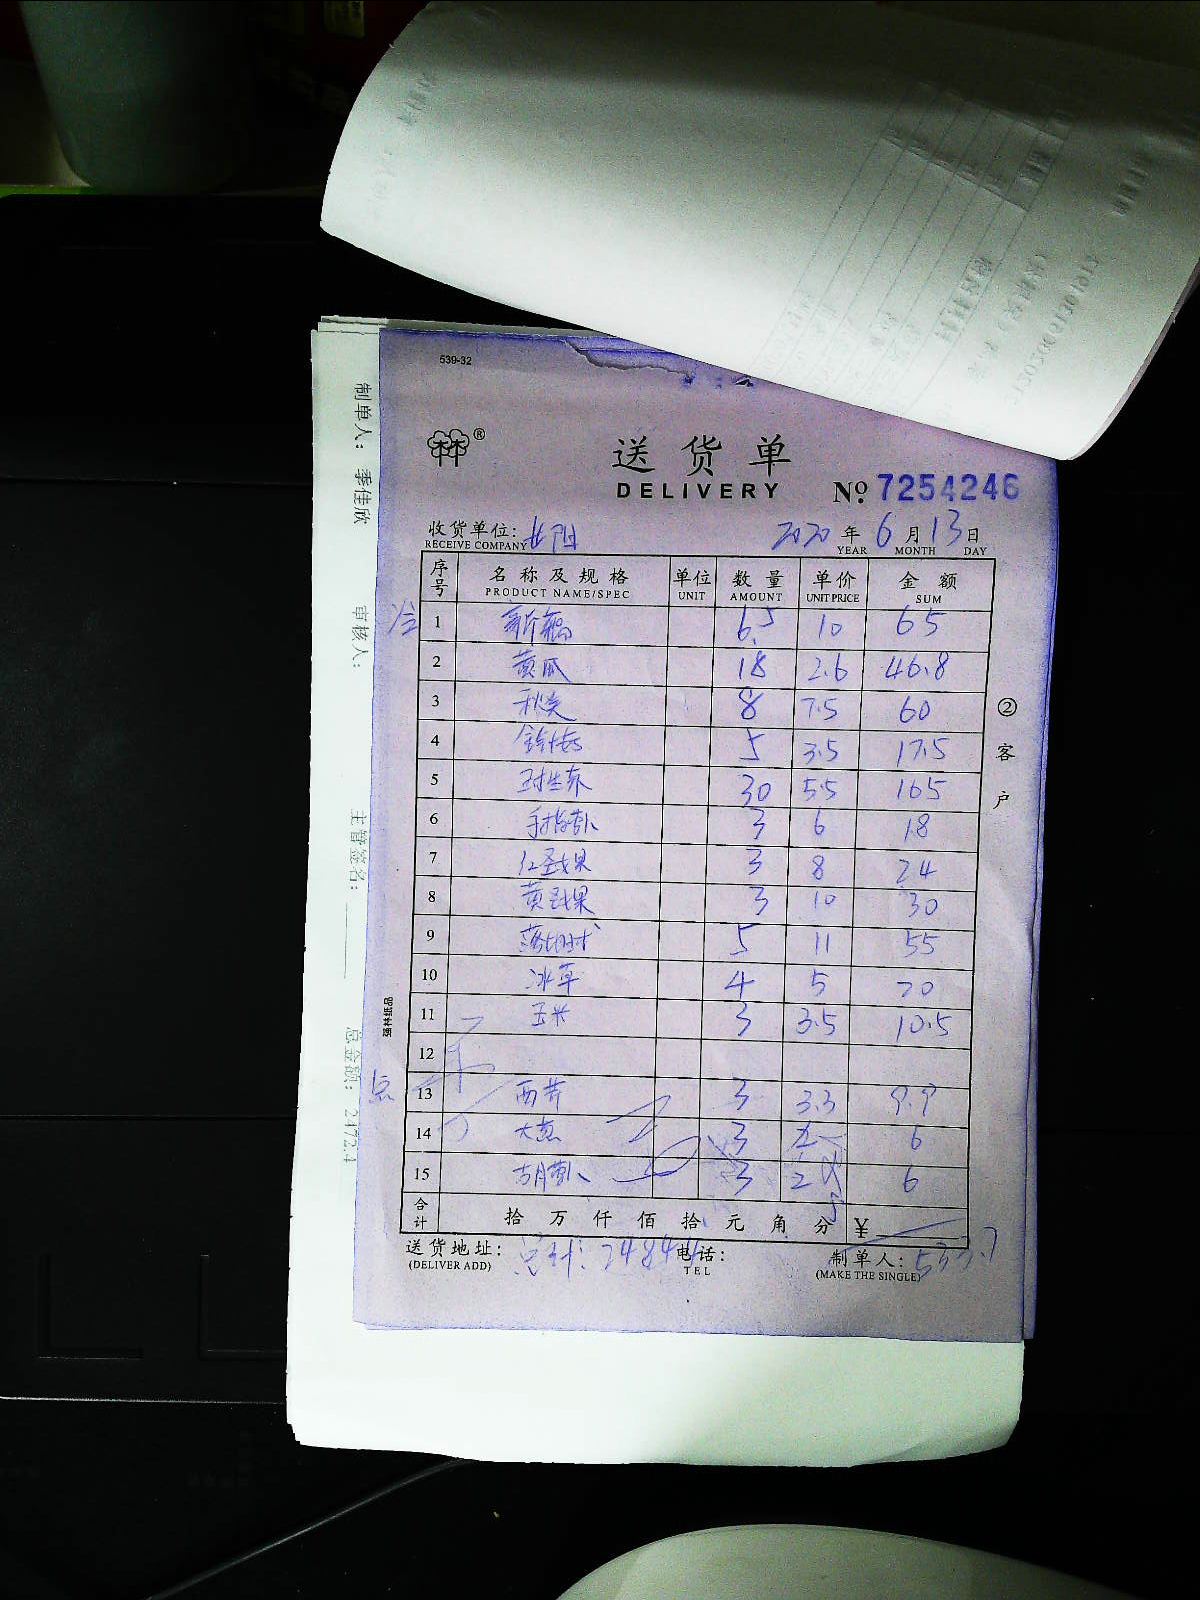 539-32
林林®
送货单
DELIVERY
№ 7254246
收货单位:
RECEIVE COMPANY
2020 年 6 月 13 日
YEAR MONTH DAY
序号 名称及规格 单位 数量 单价 金额
PRODUCT NAME/SPEC UNIT AMOUNT UNIT PRICE SUM
冷 1 6.5 10 65
2 黄瓜 18 2.6 46.8
3 秋葵 8 7.5 60
4 5 3.5 17.5
5 30 5.5 165
6 手指萝卜 3 6 18
7 红圣女果 3 8 24
8 黄圣女果 3 10 30
9 5 11 55
10 冰草 4 5 20
11 玉米 3 3.5 10.5
12
点 13 西芹 3 3.3 9.9
14 大葱 3 2 6
15 胡萝卜 3 2 6
合计 拾 万 仟 佰 拾 元 角 分 ¥
533.7
送货地址:
(DELIVER ADD)
总计:
电话:
TEL
制单人:
(MAKE THE SINGLE)
②客户
强林纸品
制单人: 季佳欣
审核人:
主管签名:
总金额: 2472.4